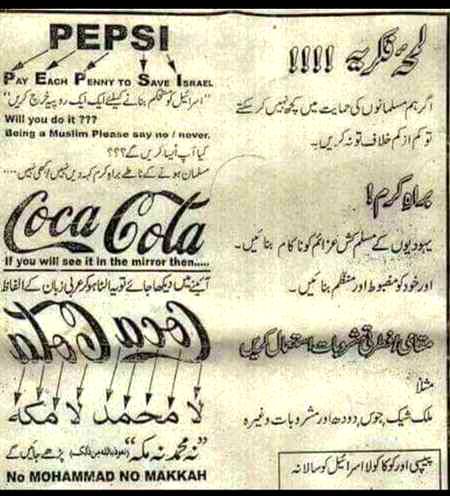 PEPSI
PAY EACH PENNY TO SAVE ISRAEL
"اسرائیل کو مستحکم بنانے کیلئے ایک ایک روپیہ خرچ کریں"
Will you do it ???
Being a Muslim Please say no / never.
کیا آپ ایسا کریں گے؟؟؟
مسلمان ہونے کے ناطے براہ کرم کہہ دیں نہیں کبھی نہیں....
Coca Cola
If you will see it in the mirror then.....
آئینے میں دیکھا جائے تو یہ الٹا ہو کر عربی زبان کے الفاظ
Coca Cola
لا محمد لا مکه
"نہ محمد نہ مکہ" (نعوذ باللہ من ذلک) پڑھے جائیں گے
No MOHAMMAD NO MAKKAH
لمحۂ فکریہ !!!!
اگر ہم مسلمانوں کی حمایت میں کچھ نہیں کر سکتے
تو کم از کم خلاف تو نہ کریں۔
براہِ کرم!
یہودیوں کے مسلم کش عزائم کو ناکام بنائیں۔
اور خود کو مضبوط اور منظم بنائیں۔
مقامی / فطرتی مشروبات استعمال کریں
مثلاً
ملک شیک، جوس، دودھ اور مشروبات وغیرہ
پیپسی اور کوکا کولا اسرائیل کو سالانہ